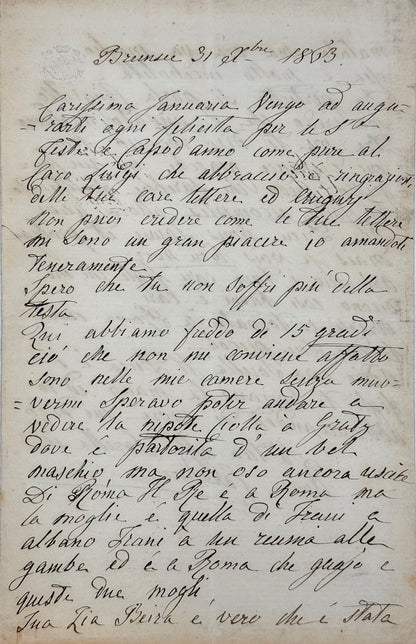 Brunsee 31 Xbre 1863.
Carissima Januaria Vengo ad augu
=rarti ogni felicità per le Ste
feste e Capod'anno come pure al
Caro Luigi che abbraccio e ringrazio
delle tue care lettere ed
Non puoi credere come le tue lettere
mi sono un gran piacere io amandoti
teneramente
Spero che tu non soffri più della
testa
Qui abbiamo freddo di 15 gradi
ciò che non mi conviene affatto
sono nelle mie camere senza muo=
=vermi speravo poter andare a
vedere la nipote a Gratz
dove è partorita d'un bel
maschio ma non oso ancora uscire
Di Roma Il Re è a Roma ma
la moglie è quella di Trani a
albano Trani à un reuma alle
gambe ed è a Roma che guajo e
queste due mogli
Tua Zia Beira è vero che è stata